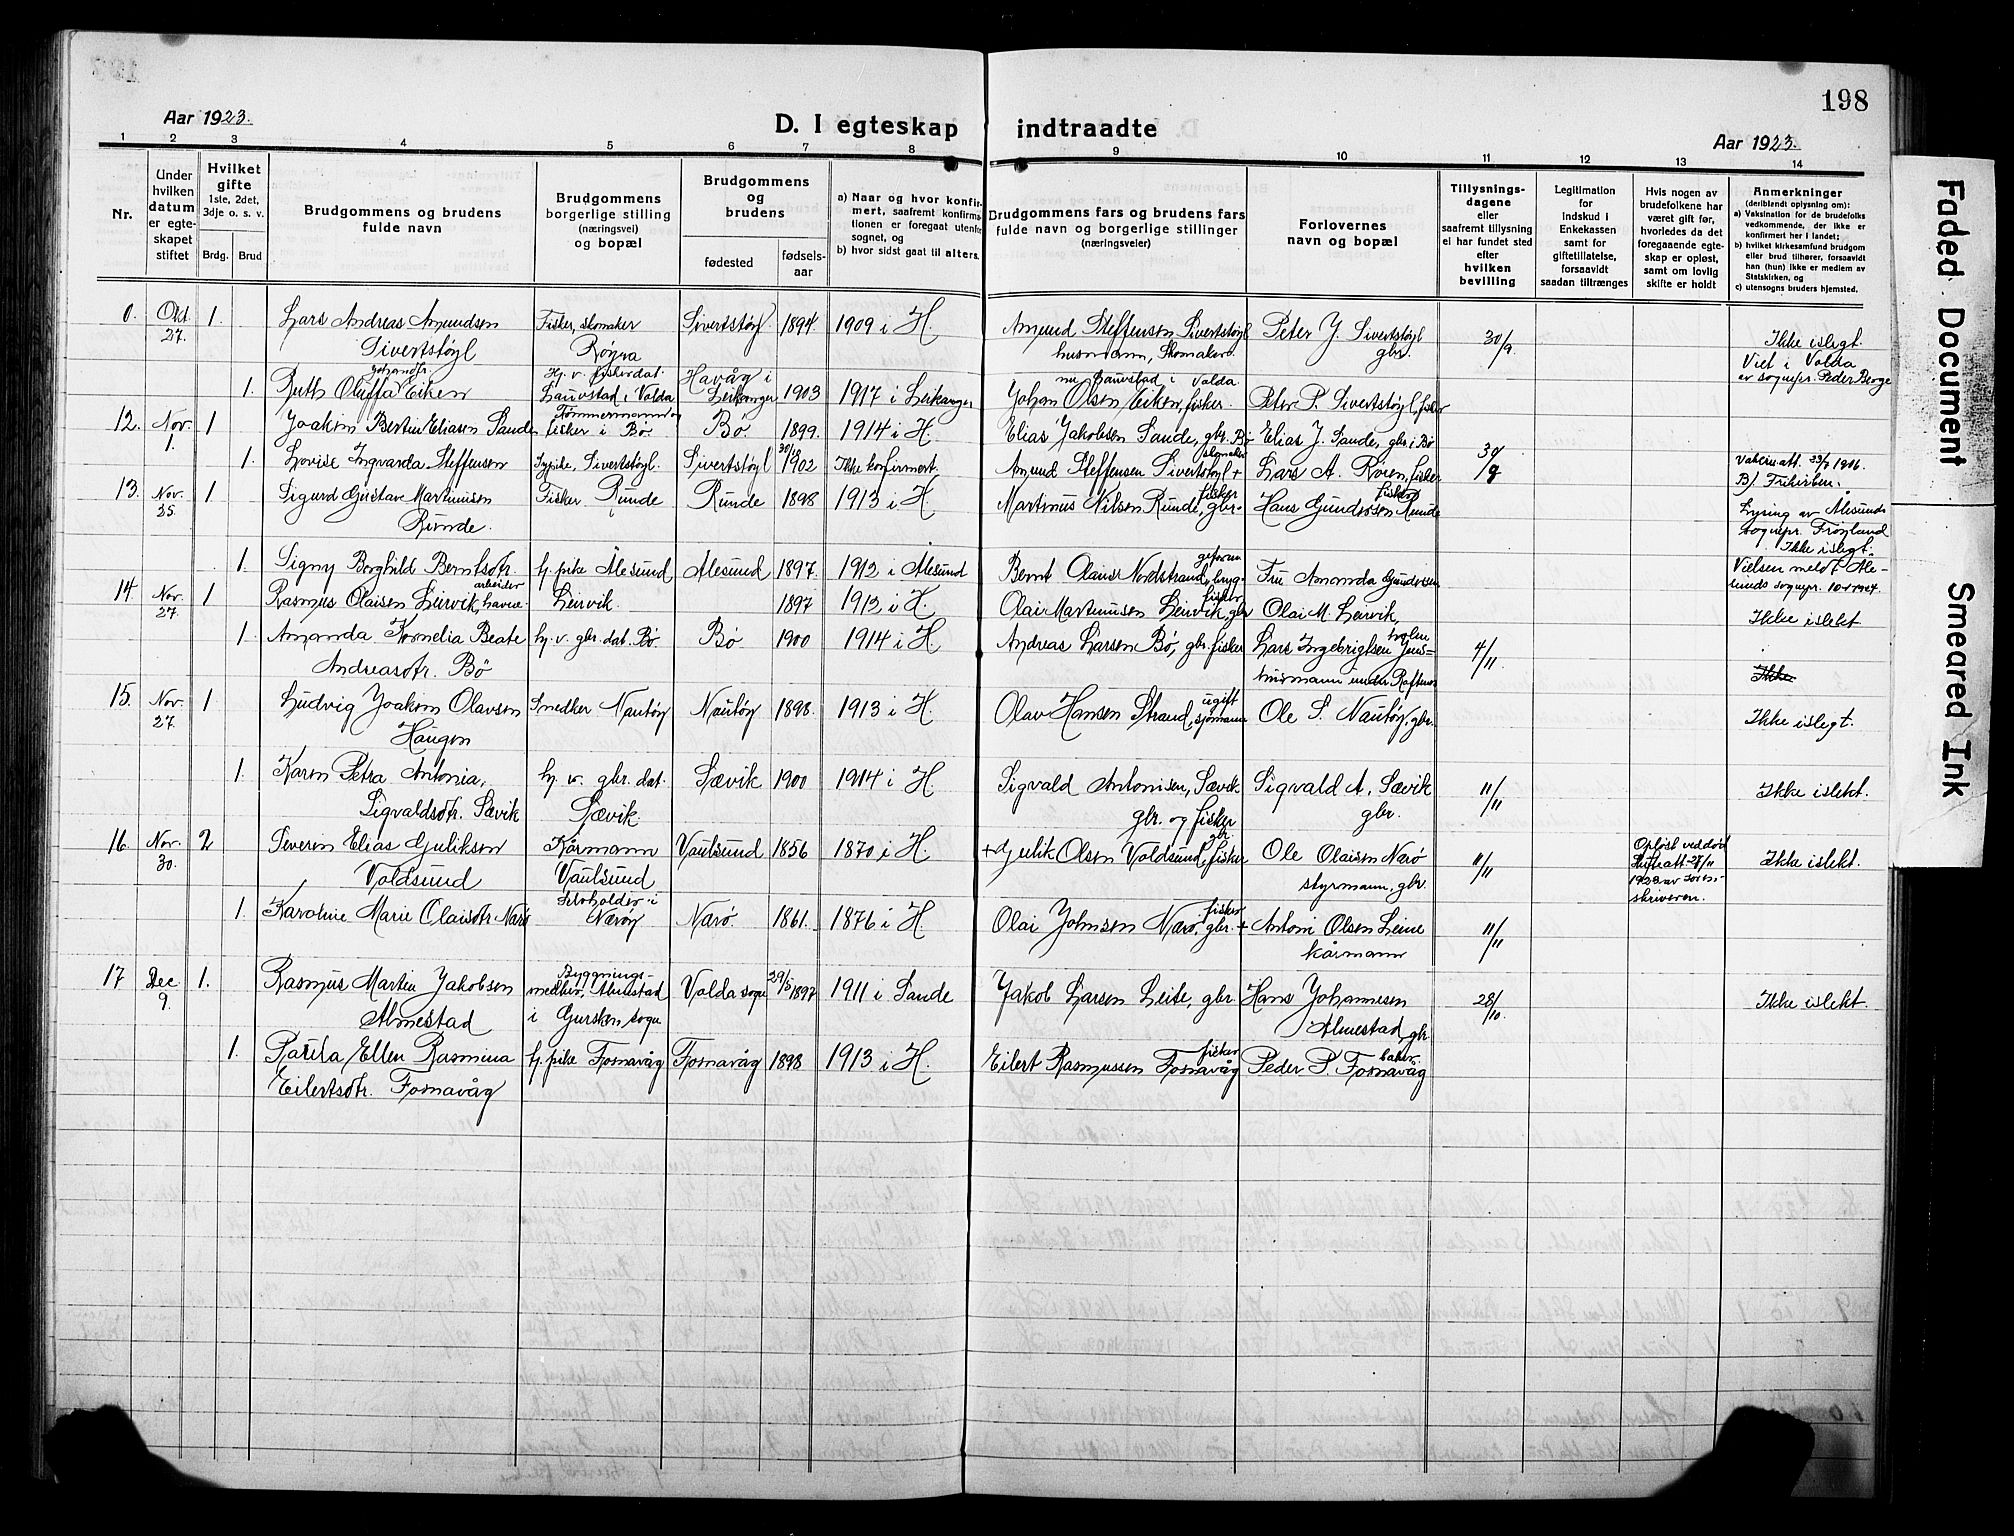 198
Aar 1923.
D. I egteskap indtraadte
Aar 1923.
1 2 3 4 5 6 7 8 9 10 11 12 13 14
Nr.
Under hvilken datum er egteskapet stiftet
Hvilket gifte
1ste, 2det, 3dje o. s. v.
Brdg. Brud
Brudgommens og brudens fulde navn
Brudgommens borgerlige stilling (næringsvei) og bopæl
Brudgommens og brudens
fødested
fødsels-aar
a) Naar og hvor konfirmert, saafremt konfirmationen er foregaat utenfor sognet, og
b) hvor sidst gaat til alters.
Brudgommens fars og brudens fars fulde navn og borgerlige stillinger (næringsveier)
Forlovernes navn og bopæl
Tillysnings-dagene eller saafremt tillysning ei har fundet sted efter hvilken bevilling
Legitimation for indskud i Enkekassen samt for giftetillatelse, forsaavidt saadan tiltrænges
Hvis nogen av brudefolkene har været gift før, hvorledes da det foregaaende egteskap er opløst, samt om lovlig skifte er holdt
Anmerkninger
(deriblandt oplysning om):
a) Vaksination for de brudefolks vedkommende, der ikke er konfirmert her i landet;
b) hvilket kirkesamfund brudgom eller brud tilhører, forsaavidt han (hun) ikke er medlem av Statskirken, og
c) utensogns bruders hjemsted.
Okt 27. 1. Lars Andreas Amundsen Sivertstøyl Fisker, skomaker Røyra Sivertstøyl 1894. 1909 i H. Amund Steffensen Sivertstøyl husmann, Skomaker. Peter J. Sivertstøyl gbr. 30/9 Ikke islegt. Viet i Volda av sognepr. Peder Berge
1. Ruth Oluffa Johansdr. Eiken Hj. v. fiskerdat. Lauvstad i Volda Havåg i Leikanger 1903 1917 i Leikanger Johan Olsen Eiken, fisker. nu Lauvstad i Volda Peter P. Sivertstøyl, fisker
12. Nov. 1. 1 Joakim Bertin Eliasen Sande Tømmermann og fisker i Bø. Bø. 1899. 1914 i H. Elias Jakobsen Sande, gbr. Bø Elias J. Sande, gbr. i Bø
1. Lovise Ingvarda Steffensen Sypike, Sivertstøyl. Sivertstøyl 1902 Ikke konfirmert. Amund Steffensen Sivertstøyl + skomaker Lars A. Røren, fisker 30/9 Vaksin. att. 23/7 1906. B) Frikirken.
13. Nov. 25. 1 Sigurd Gustav Martinusen Runde. Fisker Runde Runde 1898 1913 i H. Martinus Nilsen Runde, fisker gbr. Hans Gundersen Runde fisker Lysing av Ålesunds sognepr. Frøyland Ikke islegt.
1. Signy Borghild Berntsdtr. hj. pike Ålesund Ålesund 1897. 1912 i Ålesund Bernt Olaus Nordstrand, Fru Amanda Gundersen Vielsen meldt Ålesunds sognepr.
14 Nov. 27. 1 Rasmus Olaisen Leirvik, havnearbeider Leirvik. 1897 1912 i H. Olai Martinusen Leirvik, fisker gbr Olai M. Leirvik, Ikke islekt
1. Amanda Kornelia Beate Andreasdtr. Bø hj. v. gbr. dat. Bø. Bø. 1900 1914 i H. Andreas Larsen Bø, gbr. fisker Lars Ingebrigtsen Jens-holm husmann under Raftenes 4/11. Ikke
15. Nov. 27. 1 Ludvig Joakim Olavsen Haugen Smedker Nautøy Nautøy 1898. 1913 i H. Olav Hansen Strand, ugift sjømann Ole S. Nautøy, gbr. Ikke islegt.
1. Karen Petra Antonia, Sigvaldsdtr. Sævik hj. v. gbr. dat. Sævik. Sævik 1900 1914 i H. Sigvald Antonisen, Sævik gbr. og fisker Sigvald A. Sævik gbr. 11/11 Ikke islekt.
16. Nov. 30. 2 Severin Elias Guliksen Voldsund Kårmann Vaulsund Vaulsund 1856 1870 i H. + Gulik Olsen Voldsund, gbr. fisker Ole Olaisen Nærø styrmann, gbr. 11/11 Opløst ved død Skifteatt. 28/11 1923 av sorenskriveren. Ikke islekt.
1. Karoline Marie Olaisdtr Nærø i Nærøy Nærø. 1861. 1876 i H. Olai Johnsen Nærø, fisker gbr. + Antoni Olsen Leine kårmann 11/11
17 Dec 9. 1. Rasmus Martin Jakobsen Almestad Bygnings-snedker, Almestad i Gursken sogn Volda sogn 29/5 1897 1911 i Sande Jakob Larsen Leite, gbr. Hans Johannesen Almestad, gbr. 28/10 Ikke islekt.
1. Paula Ellen Rasmina Eilertsdtr. Fosnavåg hj. pike Fosnavåg Fosnavåg 1898 1913 i H. Eilert Rasmussen Fosnavåg fisker Peder P. Fosnavåg baker
Faded Document
Smeared Ink